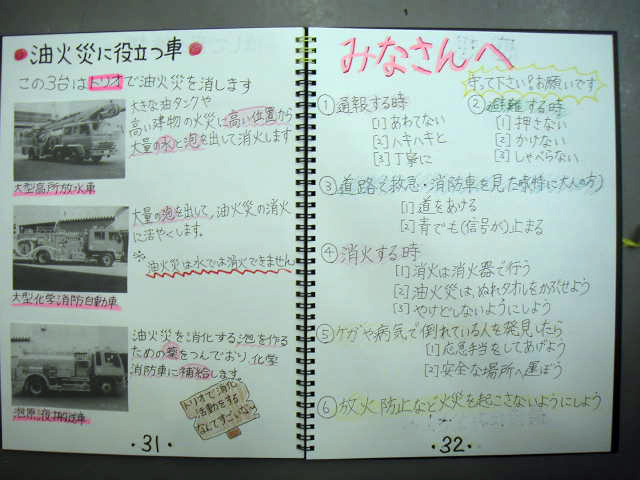 油火災に役立つ車
この3台はトリオで油火災を消します
大きな油タンクや
高い建物の火災に高い位置から
大量の水と泡を出して消火します
大型高所放水車
大量の泡を出して、油火災の消火
に活やくします。
※
油火災は水では消火できません
大型化学消防自動車
油火災を消化する泡を作る
ための薬をつんでおり、化学
消防車に補給します。
泡原液搬送車
トリオで消化
活動をする
なんてすごいな〜
・31・
みなさんへ
守って下さい!お願いです
①通報する時
[1]あわてない
[2]ハキハキと
[3]丁寧に
②避難する時
[1]押さない
[2]かけない
[3]しゃべらない
③道路で救急・消防車を見た時(特に大人の方)
[1]道をあける
[2]青でも(信号が)止まる
④消火する時
[1]消火は消火器で行う
[2]油火災は、ぬれタオルをかぶせよう
[3]やけどしないようにしよう
⑤ケガや病気で倒れている人を発見したら
[1]応急手当をしてあげよう
[2]安全な場所へ運ぼう
⑥放火防止など火災を起こさないようにしよう
・32・